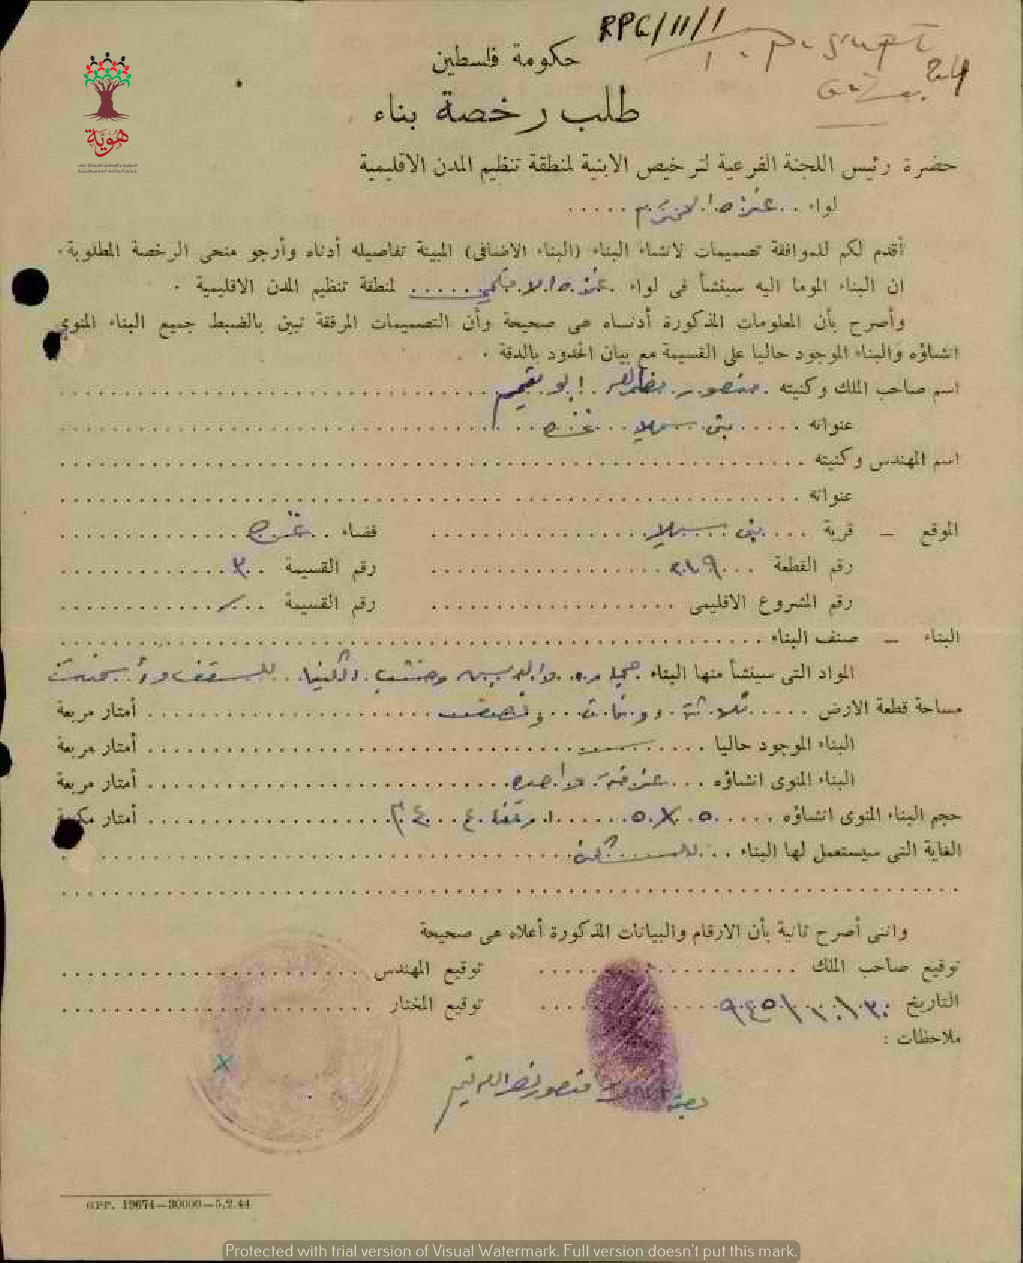 RPC/11/1
حكومة فلسطين
24
طلب رخصة بناء
هوية
حضرة رئيس اللجنة الفرعية لترخيص الابنية لمنطقة تنظيم المدن الاقليمية
لواء .. غزه المحترم .....
أقدم لكم للموافقة تصميمات لانشاء البناء (البناء الاضافى) المبينة تفاصيله أدناه وأرجو منحى الرخصة المطلوبة.
ان البناء الموما اليه سينشأ فى لواء . غزه ...... لمنطقة تنظيم المدن الاقليمية .
وأصرح بأن المعلومات المذكورة أدناه هى صحيحة وأن التصميمات المرفقة تبين بالضبط جميع البناء المنوي
انشاؤه والبناء الموجود حاليا على القسيمة مع بيان الحدود بالدقة .
اسم صاحب الملك وكنيته . منصور ابو تيم
عنوانه ..... بنى سهيلا .. غزه
اسم المهندس وكنيته
عنوانه
الموقع – قرية .... بنى سهيلا قضاء .. غزه
رقم القطعة ... ٢٤٩ رقم القسيمة .. ٣٠
رقم المشروع الاقليمى رقم القسيمة
البناء – صنف البناء
المواد التى سينشأ منها البناء حجاره والدبس وخشب للسقف
مساحة قطعة الارض ..... ثلاثة دونمات ونصف أمتار مربعة
البناء الموجود حاليا أمتار مربعة
البناء المنوى انشاؤه ... غرفة واحده أمتار مربعة
حجم البناء المنوى انشاؤه ..... ٥ X ٥ ارتفاع ٤ أمتار مكعبة
الغاية التى سيستعمل لها البناء .. للسكن
واننى أصرح ثانية بأن الارقام والبيانات المذكورة أعلاه هى صحيحة
توقيع صاحب الملك توقيع المهندس
التاريخ ٣٠/١٠/٩٤٥ توقيع المختار
ملاحظات :
بصمة منصور نصرالله تيم
GPP. 19674—30000—5.2.44
Protected with trial version of Visual Watermark. Full version doesn't put this mark.